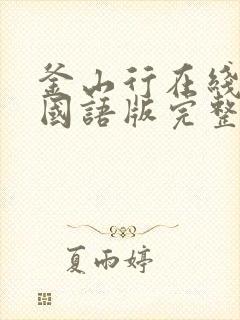 釜山行在綫
國語版完整
夏雨婷